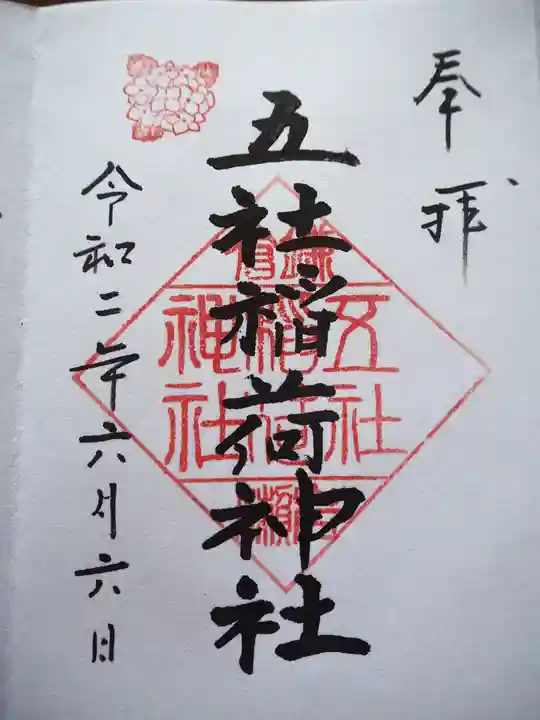 奉拝
五社稲荷神社
五社
稲荷
神社
令和二年六月六日